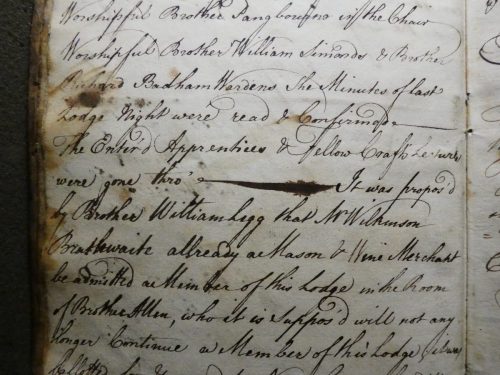 Worshipful Brother Pangbourn in the Chair
Worshipful Brother William Simonds & Brother
Richard Badham Wardens The Minutes of last
Lodge Night were read & Confirmed
The Enter'd Apprentices & Fellow Crafts Lectures
were gone thro' It was propos'd
by Brother William Legg that Mr Wilkinson
Brathwaite allready a Mason & Wine Merchant
be admitted a Member of this Lodge in the Room
of Brother Allen, who it is suppos'd will not any
longer Continue a Member of this Lodge
ballotted for